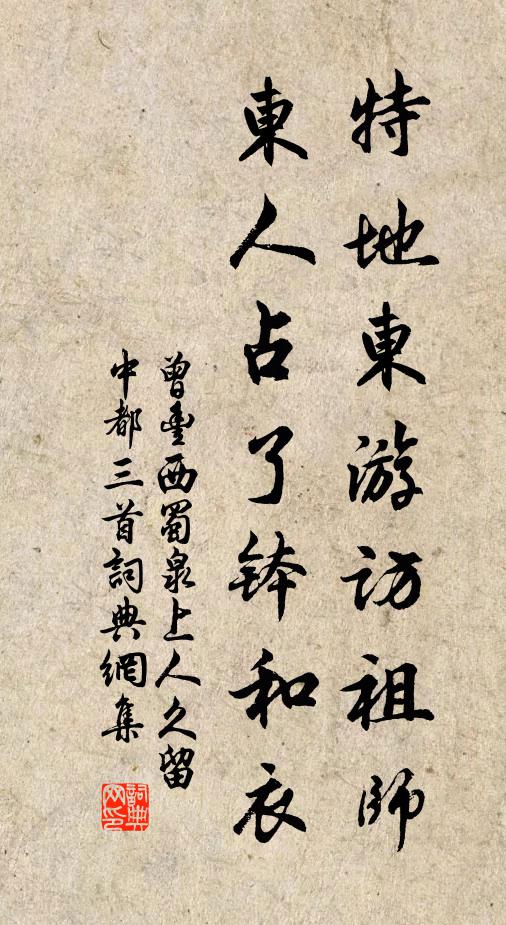 特地東游訪祖師
東人占了鉢和衣
曾豊西蜀泉上人久留
中都三首詞典網集
詞典
网印